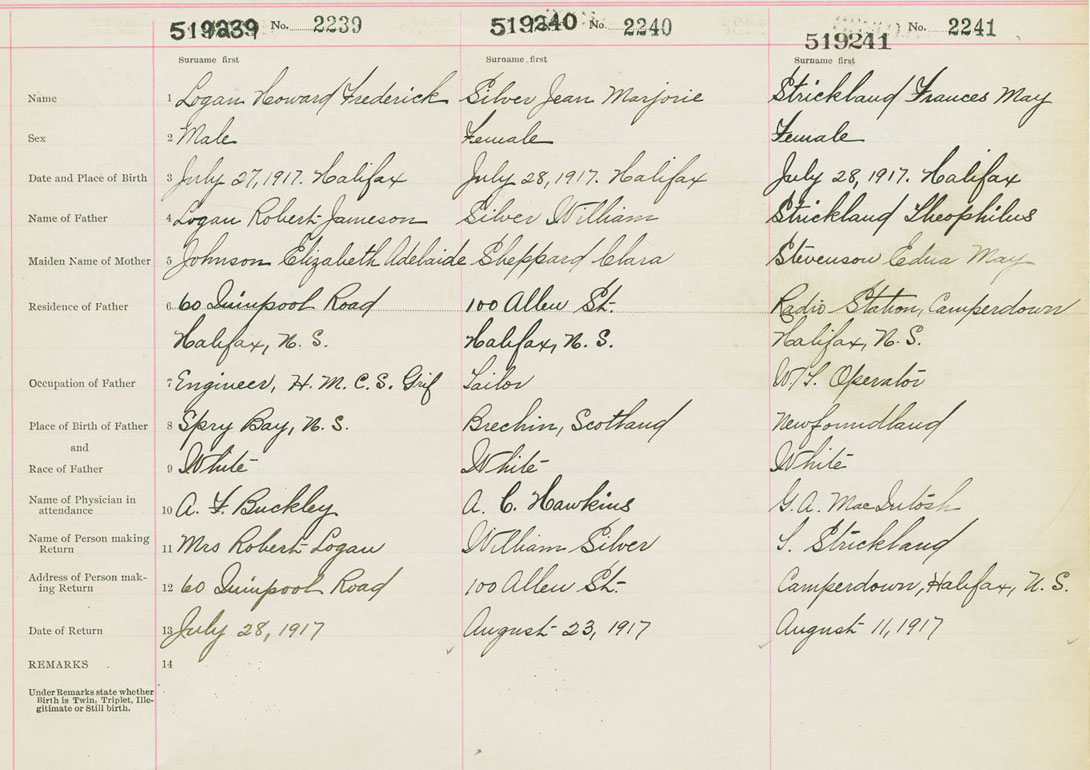 519239 No. 2239 519240 No. 2240 519241 No. 2241
Surname first Surname first Surname first
Name 1 Logan Howard Frederick Silver Jean Marjorie Strickland Frances May
Sex 2 Male Female Female
Date and Place of Birth 3 July 27, 1917. Halifax July 28, 1917. Halifax July 28, 1917. Halifax
Name of Father 4 Logan Robert Jameson Silver William Strickland Theophilus
Maiden Name of Mother 5 Johnson Elizabeth Adelaide Sheppard Clara Stevenson Edna May
Residence of Father 6 60 Quinpool Road 100 Allen St. Radio Station, Camperdown
Halifax, N. S. Halifax, N. S. Halifax, N. S.
Occupation of Father 7 Engineer, H. M. C. S. Grif Tailor W/T. Operator
Place of Birth of Father 8 Spry Bay, N. S. Brechin, Scotland Newfoundland
and
Race of Father 9 White White White
Name of Physician in
attendance 10 A. F. Buckley A. C. Hawkins G. A. MacIntosh
Name of Person making
Return 11 Mrs Robert Logan William Silver T. Strickland
Address of Person mak-
ing Return 12 60 Quinpool Road 100 Allen St. Camperdown, Halifax, N. S.
Date of Return 13 July 28, 1917 August 23, 1917 August 11, 1917
REMARKS 14
Under Remarks state whether
Birth is Twin, Triplet, Ille-
gitimate or Still birth.